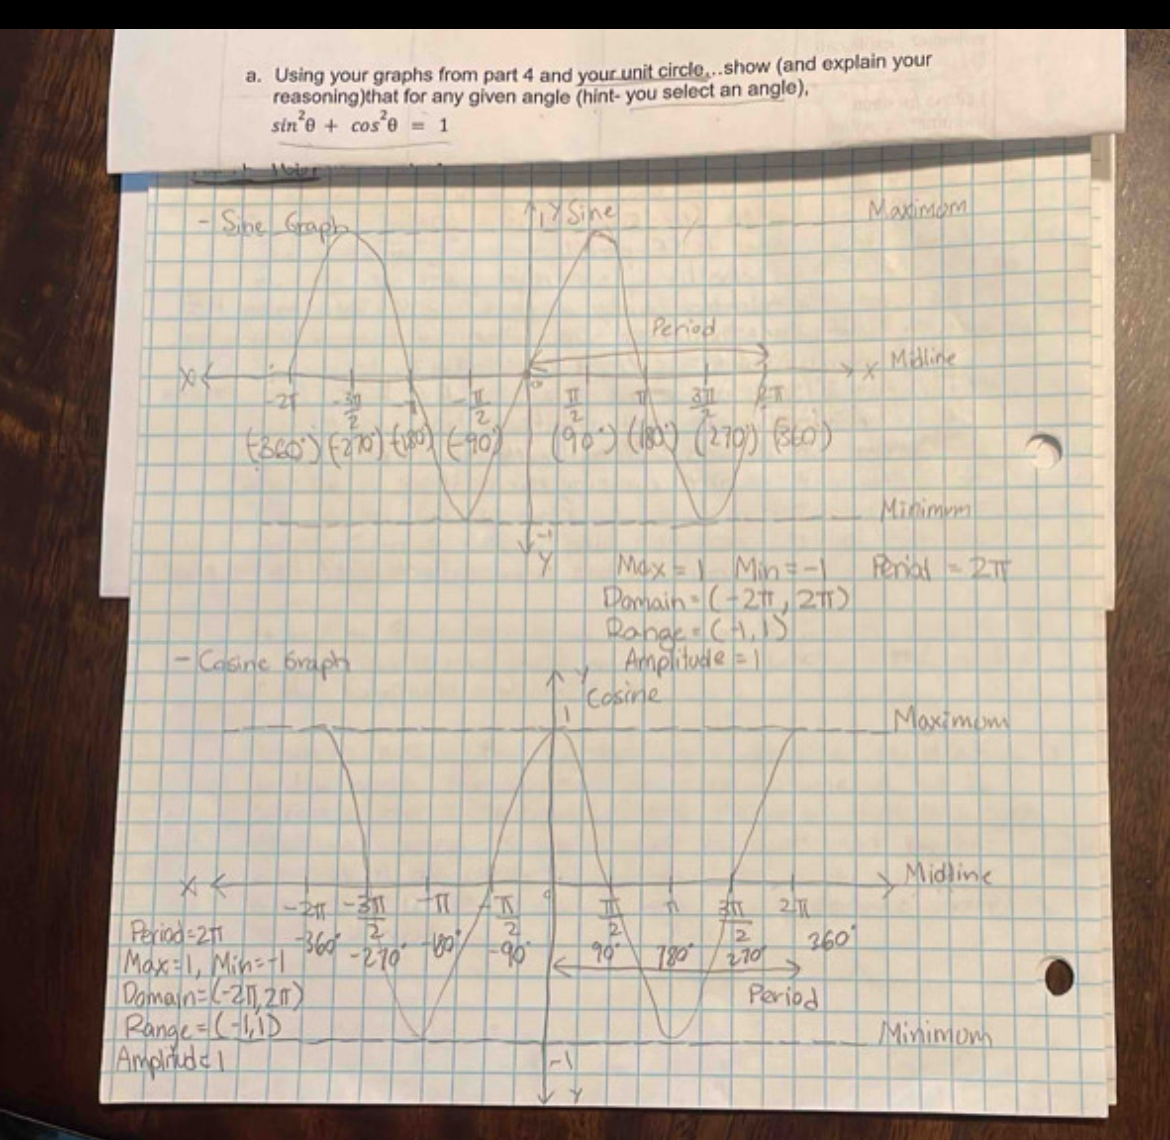 a. Using your graphs from part 4 and your unit circle,..show (and explain your
reasoning)that for any given angle (hint- you select an angle),
sin²θ + cos²θ = 1
- Sine Graph
1 Y Sine
Maximum
Period
X
X Midline
-2π -3π/2 -π -π/2 0 π/2 π 3π/2 2π
(-360°) (-270°) (-180°) (-90°) (90°) (180°) (270°) (360°)
Minimum
-1
Y
Max = 1 Min = -1 Period = 2π
Domain = (-2π, 2π)
Range = (-1, 1)
Amplitude = 1
- Cosine Graph
Y
Cosine
1
Maximum
X
Midline
-2π -3π/2 -π -π/2 0 π/2 π 3π/2 2π
-360° -270° -180° -90° 90° 180° 270° 360°
Period=2π
Max=1, Min=-1
Domain=(-2π, 2π)
Range=(-1,1)
Amplitude=1
Period
Minimum
-1
Y